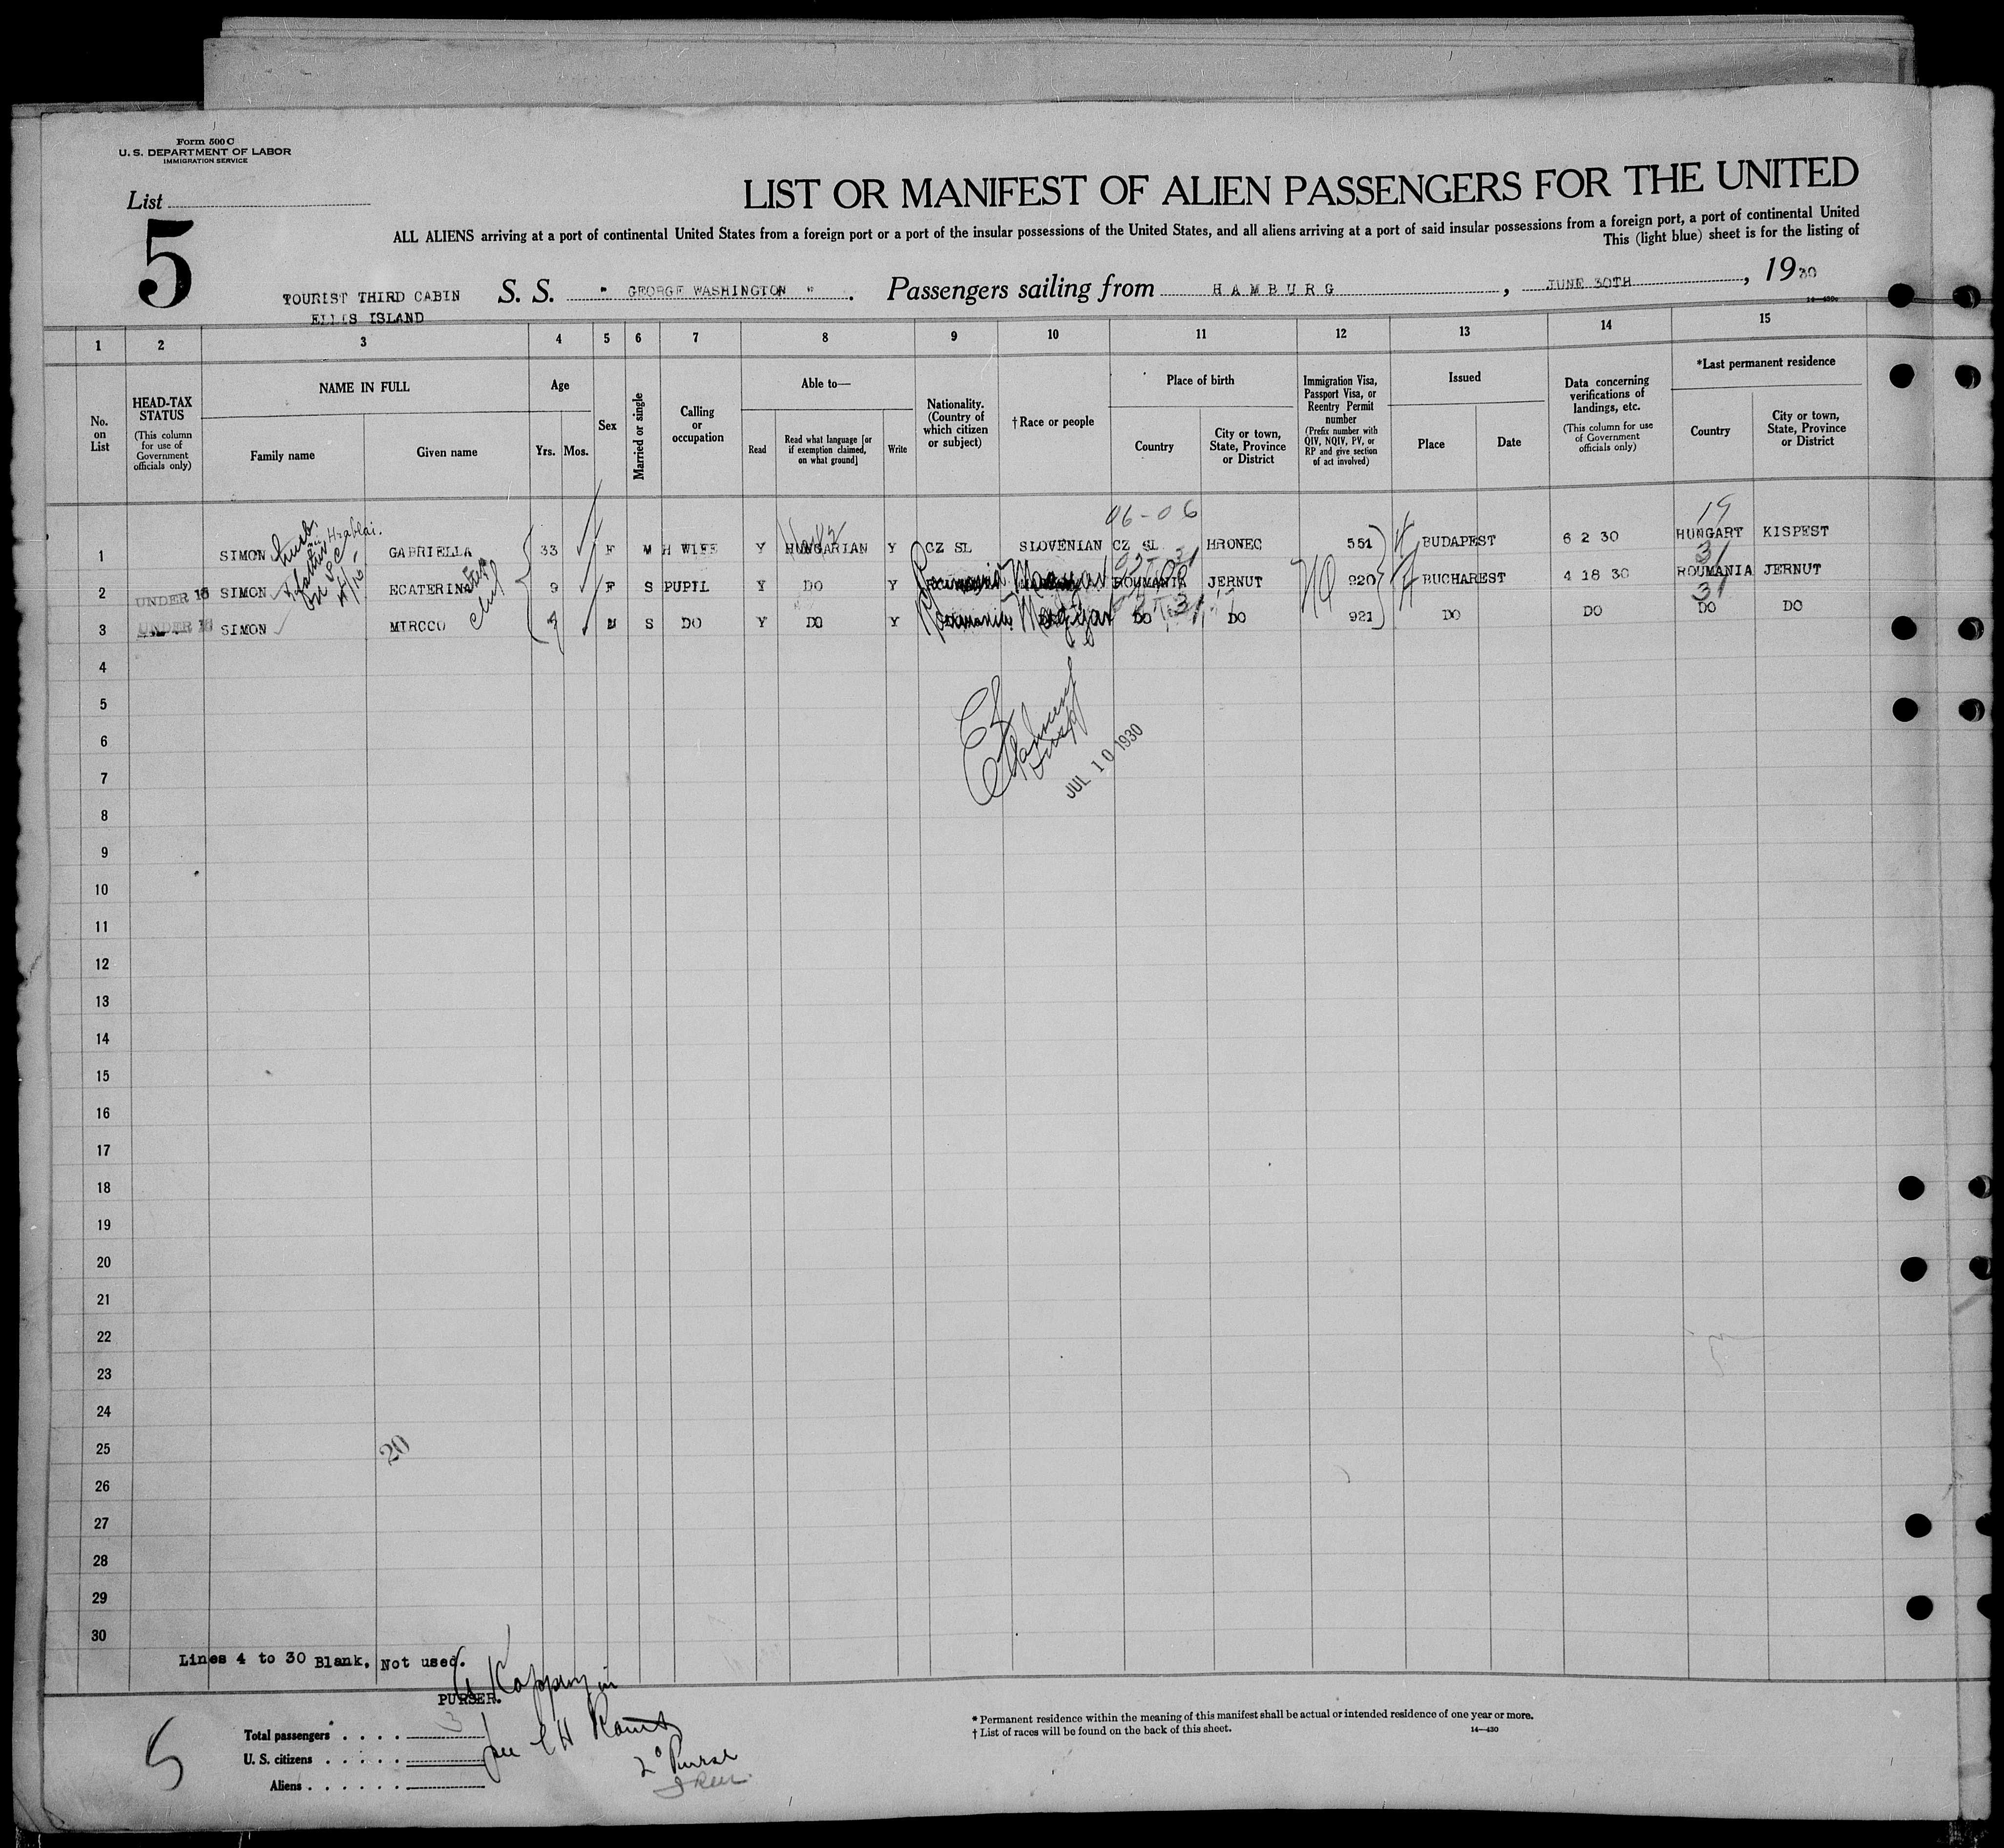 Form 500 C
U. S. DEPARTMENT OF LABOR
IMMIGRATION SERVICE
List
5
LIST OR MANIFEST OF ALIEN PASSENGERS FOR THE UNITED
ALL ALIENS arriving at a port of continental United States from a foreign port or a port of the insular possessions of the United States, and all aliens arriving at a port of said insular possessions from a foreign port, a port of continental United
This (light blue) sheet is for the listing of
TOURIST THIRD CABIN S. S. " GEORGE WASHINGTON " . Passengers sailing from HAMBURG , JUNE 30TH , 1930
ELLIS ISLAND
14—430
1 2 3 4 5 6 7 8 9 10 11 12 13 14 15
No. on List
HEAD-TAX STATUS (This column for use of Government officials only)
NAME IN FULL
Family name
Given name
Age
Yrs. Mos.
Sex
Married or single
Calling or occupation
Able to—
Read
Read what language [or if exemption claimed, on what ground]
Write
Nationality. (Country of which citizen or subject)
† Race or people
Place of birth
Country
City or town, State, Province or District
Immigration Visa, Passport Visa, or Reentry Permit number (Prefix number with QIV, NQIV, PV, or RP and give section of act involved)
Issued
Place
Date
Data concerning verifications of landings, etc. (This column for use of Government officials only)
*Last permanent residence
Country
City or town, State, Province or District
06-06 19
1 SIMON GABRIELLA 33 F M H WIFE Y HUNGARIAN Y CZ SL SLOVENIAN CZ SL HRONEC 551 BUDAPEST 6 2 30 HUNGARY KISPEST
31
2 UNDER 16 SIMON ECATERINA 9 F S PUPIL Y DO Y Roumania Magyar ROUMANIA JERNUT NQ 920 BUCHAREST 4 18 30 ROUMANIA JERNUT
31
3 UNDER 16 SIMON MIRCCO M S DO Y DO Y Roumania Magyar DO DO 921 DO DO DO DO
4
5
6
7
JUL 10 1930
8
9
10
11
12
13
14
15
16
17
18
19
20
21
22
23
24
25 20
26
27
28
29
30
Lines 4 to 30 Blank, Not used.
PURSER.
5
Total passengers 3
U. S. citizens
Aliens
2° Purser
* Permanent residence within the meaning of this manifest shall be actual or intended residence of one year or more.
† List of races will be found on the back of this sheet.
14—430